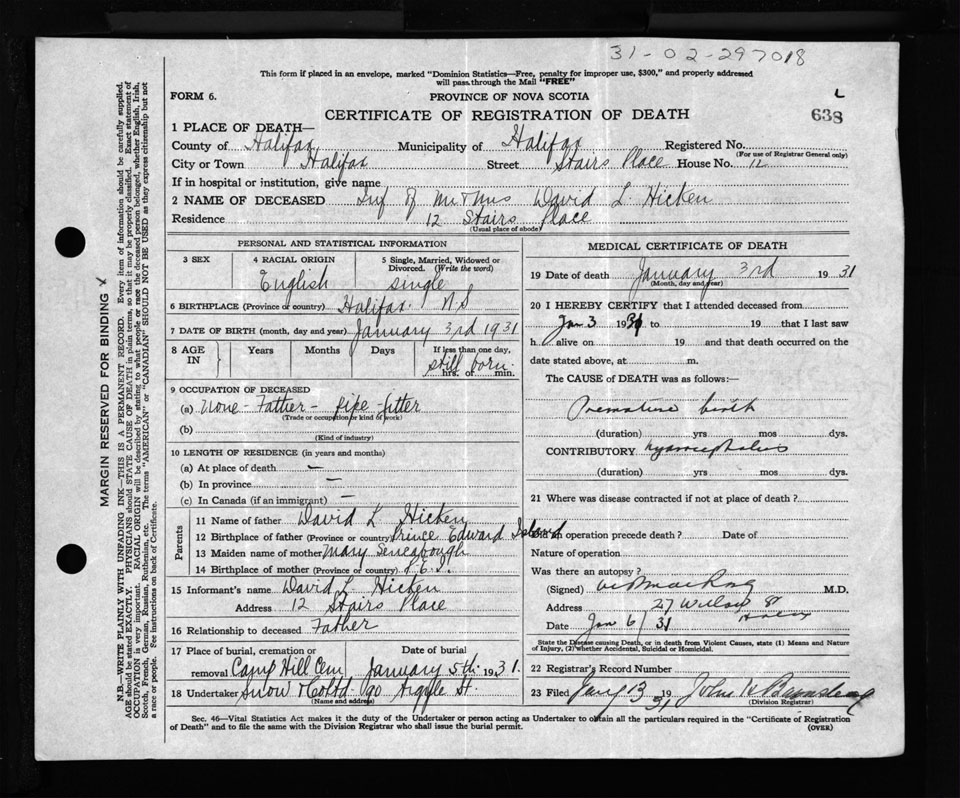 31-02-297018
This form if placed in an envelope, marked "Dominion Statistics—Free, penalty for improper use, $300," and properly addressed
will pass through the Mail "FREE"
FORM 6.
PROVINCE OF NOVA SCOTIA
L
CERTIFICATE OF REGISTRATION OF DEATH
638
1 PLACE OF DEATH—
County of Halifax Municipality of Halifax Registered No.
(For use of Registrar General only)
City or Town Halifax Street Stairs Place House No. 12
If in hospital or institution, give name
2 NAME OF DECEASED Inf of Mr & Mrs David L. Hicken
Residence 12 Stairs Place
(Usual place of abode)
PERSONAL AND STATISTICAL INFORMATION
3 SEX
4 RACIAL ORIGIN English
5 Single, Married, Widowed or Divorced. (Write the word) single
6 BIRTHPLACE (Province or country) Halifax. N S
7 DATE OF BIRTH (month, day and year) January 3rd 1931
8 AGE IN Years Months Days If less than one day, hrs. or min. still born.
9 OCCUPATION OF DECEASED
(a) None - Father - pipe-fitter
(Trade or occupation or kind of work)
(b)
(Kind of industry)
10 LENGTH OF RESIDENCE (in years and months)
(a) At place of death —
(b) In province —
(c) In Canada (if an immigrant) —
Parents
11 Name of father David L Hicken
12 Birthplace of father (Province or country) Prince Edward Island
13 Maiden name of mother Mary
14 Birthplace of mother (Province or country) P.E.I.
15 Informant's name David L. Hicken
Address 12 Stairs Place
16 Relationship to deceased Father
17 Place of burial, cremation or removal Camp Hill Cem
Date of burial January 5th 1931.
18 Undertaker Snow & Co Ltd 90 Argyle St.
(Name and address)
MEDICAL CERTIFICATE OF DEATH
19 Date of death January 3rd 1931
(Month, day and year)
20 I HEREBY CERTIFY that I attended deceased from
Jan 3 1931 to 19 that I last saw
h alive on 19 and that death occurred on the
date stated above, at m.
The CAUSE of DEATH was as follows:—
Premature birth
(duration) yrs mos dys.
CONTRIBUTORY
(duration) yrs mos dys.
21 Where was disease contracted if not at place of death?
Did an operation precede death? Date of
Nature of operation
Was there an autopsy?
(Signed) M.D.
Address 27 Willow St
Date Jan 6/31
State the Disease causing Death, or in death from Violent Causes, state (1) Means and Nature
of Injury, (2) whether Accidental, Suicidal or Homicidal.
22 Registrar's Record Number
23 Filed Jany 13 1931 John H Barnstead
(Division Registrar)
Sec. 46—Vital Statistics Act makes it the duty of the Undertaker or person acting as Undertaker to obtain all the particulars required in the "Certificate of Registration
of Death" and to file the same with the Division Registrar who shall issue the burial permit.
(OVER)
MARGIN RESERVED FOR BINDING
N.B.—WRITE PLAINLY WITH UNFADING INK—THIS IS A PERMANENT RECORD. Every item of information should be carefully supplied.
AGE should be stated EXACTLY. PHYSICIANS should STATE CAUSE OF DEATH in plain terms, so that it may be properly classified. Exact statement of
OCCUPATION is very important. RACIAL ORIGIN will be described by stating to what people or race the deceased person belonged, whether English, Irish,
Scotch, French, German, Russian, Ruthenian, etc. The terms "AMERICAN" or "CANADIAN" SHOULD NOT BE USED as they express citizenship but not
a race or people. See instructions on back of Certificate.